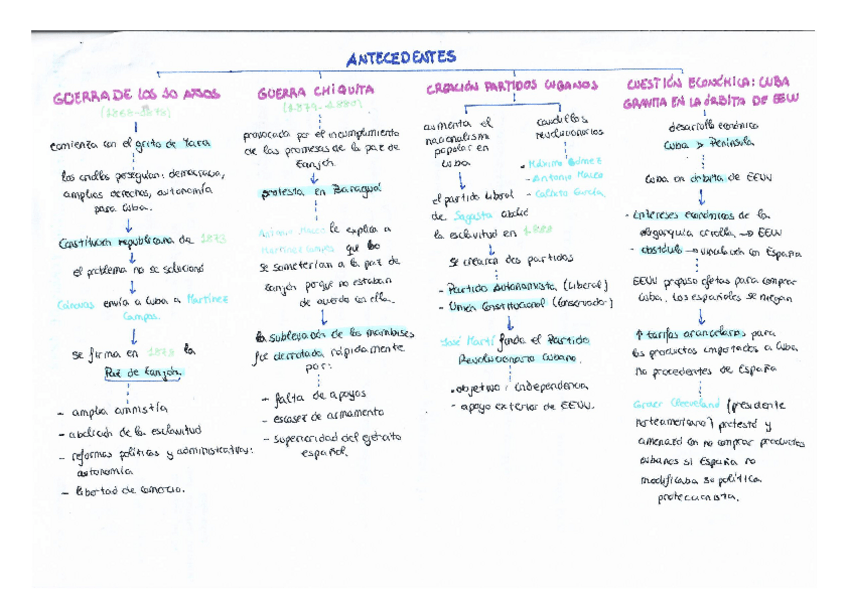 ANTECEDENTES
GUERRA DE LOS 10 AÑOS
(1868-1878)
comienza con el grito de Yara
los criollos perseguían: democracia,
amplios derechos, autonomía
para Cuba.
Constitución republicana de 1873
el problema no se solucionó
Cánovas envía a Cuba a Martínez
Campos.
se firma en 1878 la
Paz de Zanjón.
- amplia amnistía
- abolición de la esclavitud
- reformas políticas y administrativas:
autonomía
- libertad de comercio.
GUERRA CHIQUITA
(1879-1880)
provocada por el incumplimiento
de las promesas de la paz de
Zanjón.
protesta en Baraguá
Antonio Maceo le explica a
Martínez Campos que no
se someterían a la paz de
Zanjón porque no estaban
de acuerdo con ella.
la sublevación de los mambises
fue derrotada rápidamente
por:
- falta de apoyos
- escasez de armamento
- superioridad del ejército
español.
CREACIÓN PARTIDOS CUBANOS
aumenta el
nacionalismo
popular en
Cuba
caudillos
revolucionarios
- Máximo Gómez
- Antonio Maceo
- Calixto García
el partido liberal
de Sagasta abolió
la esclavitud en 1888
se crearon dos partidos
- Partido Autonomista (Liberal)
- Unión Constitucional (Conservador)
José Martí funda el Partido
Revolucionario Cubano.
• objetivo: independencia
- apoyo exterior de EEUU.
CUESTIÓN ECONÓMICA: CUBA
GRAVITA EN LA ÓRBITA DE EEUU
desarrollo económico
Cuba > Península
Cuba en órbita de EEUU
- Intereses económicos de la
oligarquía criolla → EEUU
- obstáculo → vinculación con España
EEUU propuso ofertas para comprar
Cuba. Los españoles se niegan
↑ tarifas arancelarias para
los productos importados a Cuba
no procedentes de España
Grover Cleeveland (presidente
norteamericano) protestó y
amenazó con no comprar productos
cubanos si España no
modificaba su política
proteccionista.